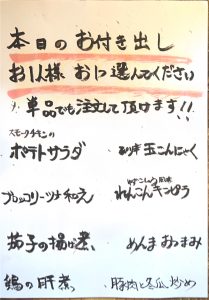 本日のお付き出し
お1人様 お1つ選んでください
単品でも注文して頂けます!!
スモークチキンの
ポテトサラダ
玉こんにゃく
ブロッコリーツナ和え
ゆずこしょう風味
れんこんキンピラ
茄子の揚げ煮
めんまおつまみ
鶏の肝煮
豚肉と冬瓜炒め